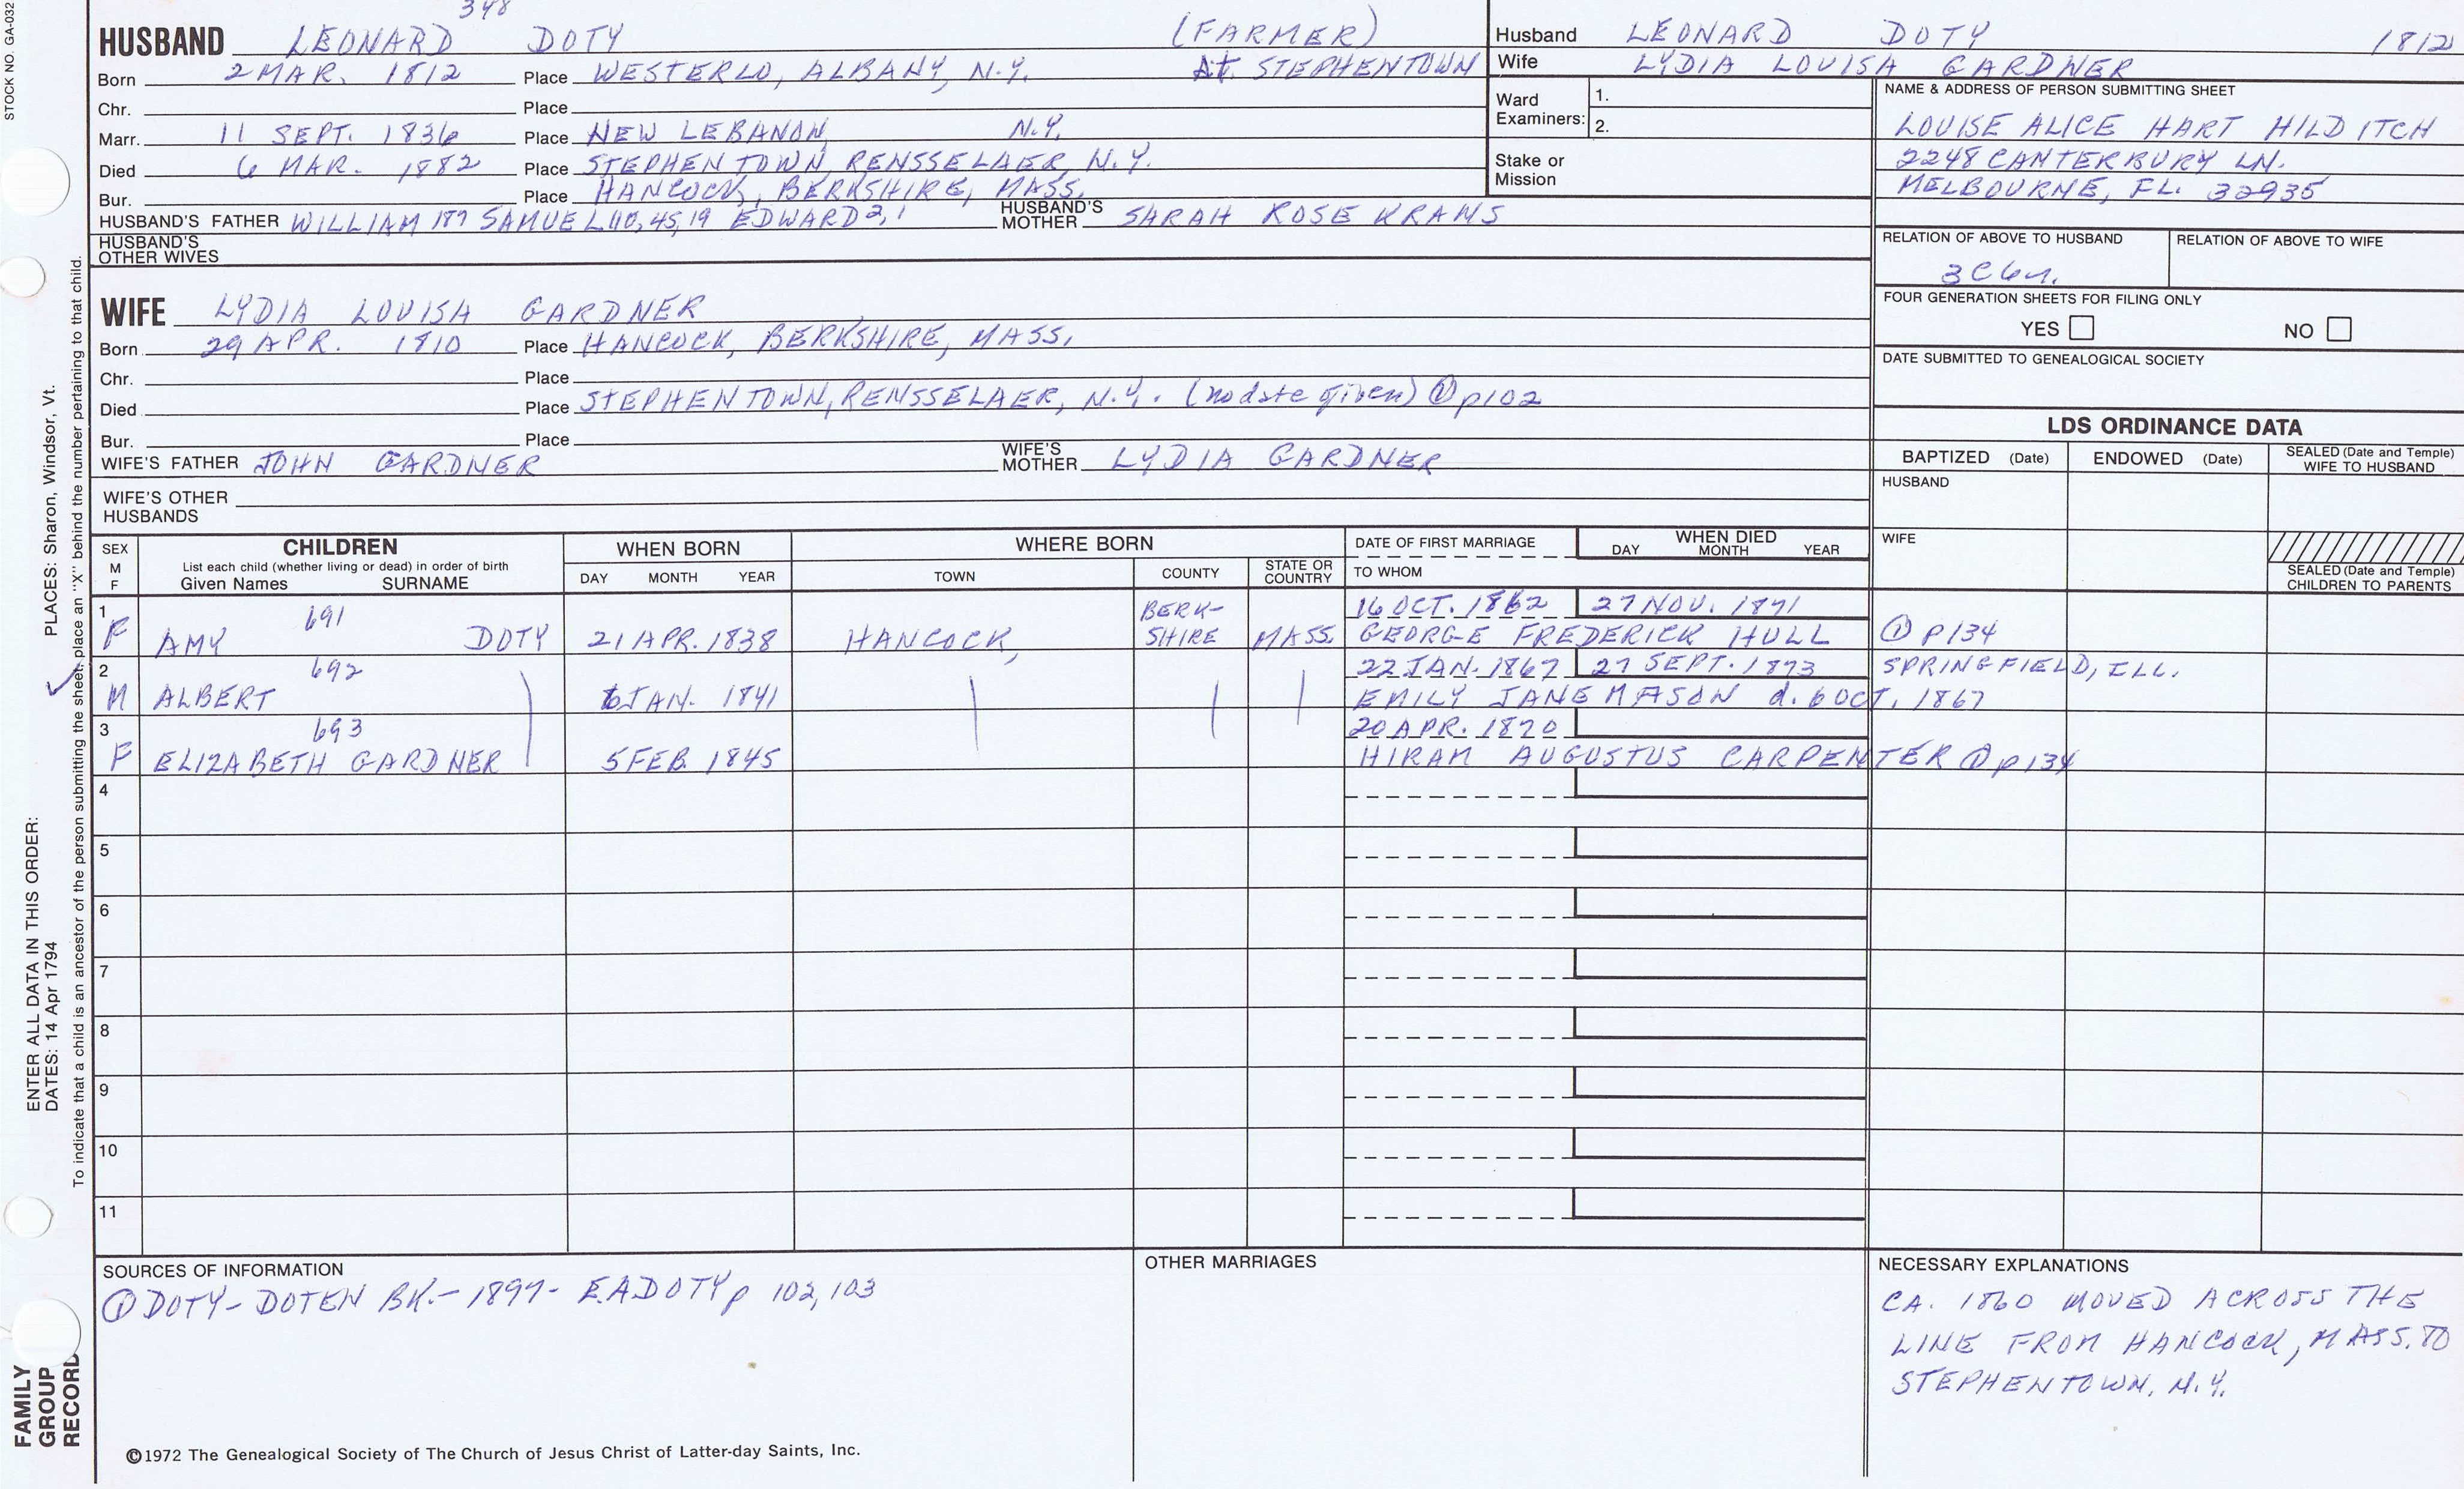 STOCK NO. GA-032
348
HUSBAND LEONARD DOTY (FARMER)
Born 2 MAR. 1812 Place WESTERLO, ALBANY, N.Y. At STEPHENTOWN
Chr. Place
Marr. 11 SEPT. 1836 Place NEW LEBANON, N.Y.
Died 6 MAR. 1882 Place STEPHENTOWN, RENSSELAER, N.Y.
Bur. Place HANCOCK, BERKSHIRE, MASS.
HUSBAND'S FATHER WILLIAM 187 SAMUEL 110, 45, 19 EDWARD 2, 1 HUSBAND'S MOTHER SARAH ROSE KRANS
HUSBAND'S OTHER WIVES
Husband LEONARD DOTY 1812
Wife LYDIA LOUISA GARDNER
Ward Examiners: 1.
2.
Stake or Mission
NAME & ADDRESS OF PERSON SUBMITTING SHEET
LOUISE ALICE HART HILDITCH
2248 CANTERBURY LN.
MELBOURNE, FL. 32935
RELATION OF ABOVE TO HUSBAND RELATION OF ABOVE TO WIFE
3C6r.
FOUR GENERATION SHEETS FOR FILING ONLY
YES NO
DATE SUBMITTED TO GENEALOGICAL SOCIETY
WIFE LYDIA LOUISA GARDNER
Born 29 APR. 1810 Place HANCOCK, BERKSHIRE, MASS.
Chr. Place
Died Place STEPHENTOWN, RENSSELAER, N.Y. (no date given) ① p102
Bur. Place
WIFE'S FATHER JOHN GARDNER WIFE'S MOTHER LYDIA GARDNER
WIFE'S OTHER HUSBANDS
LDS ORDINANCE DATA
BAPTIZED (Date) ENDOWED (Date) SEALED (Date and Temple) WIFE TO HUSBAND
HUSBAND
WIFE
SEALED (Date and Temple) CHILDREN TO PARENTS
SEX M F
CHILDREN
List each child (whether living or dead) in order of birth
Given Names SURNAME
WHEN BORN
DAY MONTH YEAR
WHERE BORN
TOWN COUNTY STATE OR COUNTRY
DATE OF FIRST MARRIAGE
TO WHOM
WHEN DIED
DAY MONTH YEAR
1 691 BERK- 16 OCT. 1862 27 NOV. 1871
F AMY DOTY 21 APR. 1838 HANCOCK, SHIRE MASS. GEORGE FREDERICK HULL ① P134
2 692 22 JAN. 1867 27 SEPT. 1873 SPRINGFIELD, ILL.
M ALBERT 6 JAN. 1841 EMILY JANE MASON d. 6 OCT. 1867
3 693 20 APR. 1870
F ELIZABETH GARDNER 5 FEB 1845 HIRAM AUGUSTUS CARPENTER ① p134
4
5
6
7
8
9
10
11
SOURCES OF INFORMATION
① DOTY-DOTEN BK.- 1897- E.A.DOTY p 102, 103
OTHER MARRIAGES
NECESSARY EXPLANATIONS
CA. 1860 MOVED ACROSS THE
LINE FROM HANCOCK, MASS. TO
STEPHENTOWN, N.Y.
©1972 The Genealogical Society of The Church of Jesus Christ of Latter-day Saints, Inc.
FAMILY GROUP RECORD
ENTER ALL DATA IN THIS ORDER:
DATES: 14 Apr 1794
PLACES: Sharon, Windsor, Vt.
To indicate that a child is an ancestor of the person submitting the sheet, place an "X" behind the number pertaining to that child.